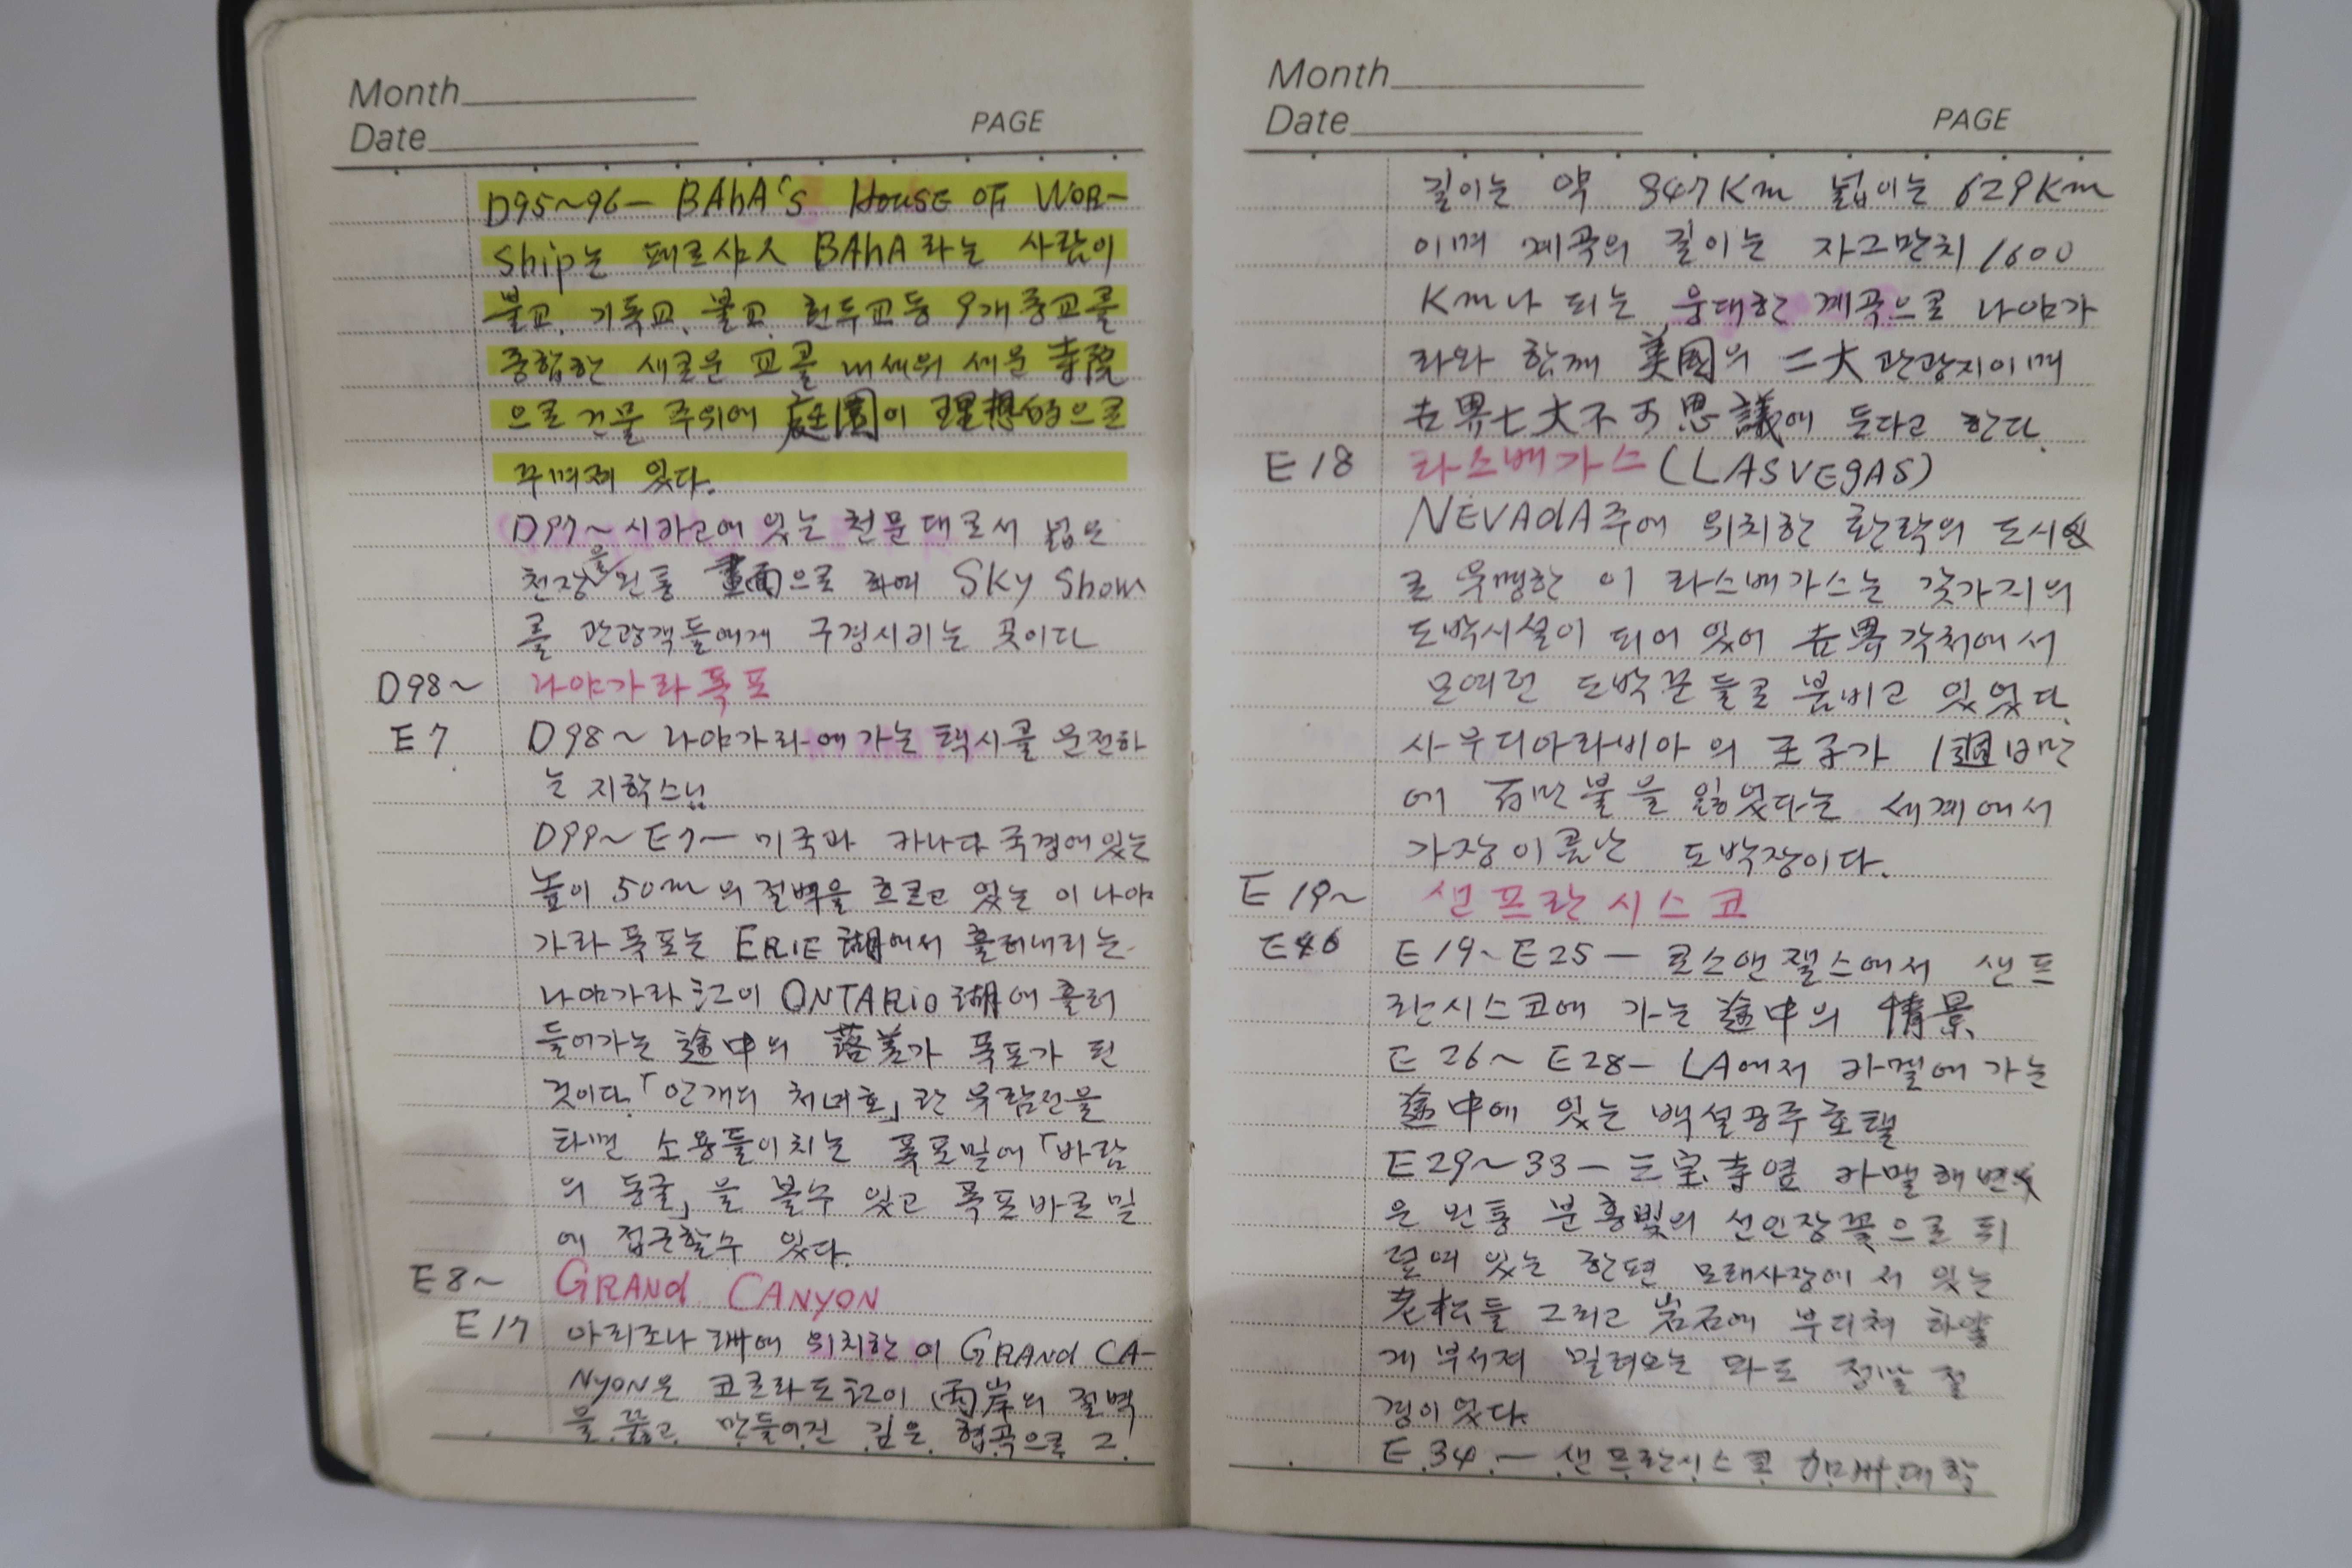 Month
Date
PAGE
D95~96- BAhA'S HOUSE OF WOR-
Ship는 페르샤人 BAhA라는 사람이
불교, 기독교, 불교, 힌두교등 9개종교를
종합한 새로운 교를 내세워 세운 寺院
으로 건물 주위에 庭園이 理想的으로
꾸며져 있다.
D97~ 시카고에 있는 천문대로서 넓은
천장을 왼통 畫面으로 하여 SKy Show
를 관광객들에게 구경시키는 곳이다
D98~ 나야가라폭포
E7 D98~ 나야가라에 가는 택시를 운전하
는 지학스님
D99~E7- 미국과 카나다 국경에 있는
높이 50m의 절벽을 흐르고 있는 이 나야
가라 폭포는 ERIE 湖에서 흘러내리는
나야가라江이 ONTARIO 湖에 흘러
들어가는 途中의 落差가 폭포가 된
것이다.「안개의 처녀호」란 유람선을
타면 소용돌이치는 폭포밑에「바람
의 동굴」을 볼수 있고 폭포바로밑
에 접근할수 있다.
E8~ GRANd CANYON
E17 아리조나 州에 위치한 이 GRANd CA-
NyON은 코로라도江이 両岸의 절벽
을 뚫고 만들어진 깊은 협곡으로 그
Month
Date
PAGE
길이는 약 347Km 넓이는 629Km
이며 계곡의 길이는 자그만치 1600
Km나 되는 웅대한 계곡으로 나야가
라와 함께 美國의 二大 관광지이며
世界七大不可思議에 든다고 한다.
E18 라스베가스 (LASVEgAS)
NEVAdA주에 위치한 환락의 도시
로 유명한 이 라스베가스는 갖가지의
도박시설이 되어 있어 世界각처에서
모여런 도박꾼들로 붐비고 있었다.
사우디아라비아의 王子가 1週日만
에 百만불을 잃었다는 세계에서
가장이름난 도박장이다.
E19~ 샌프란시스코
E46 E19~E25- 로스앤젤스에서 샌프
란시스코에 가는 途中의 情景
E26~E28- LA에서 카멜에 가는
途中에 있는 백설공주호텔
E29~33- 三宝寺옆 카멜해변
은 왼통 분홍빛의 선인장꽃으로 뒤
덮여 있는 한편 모래사장에 서 있는
老松들 그리고 岩石에 부디쳐 하얗
게 부서져 밀려오는 파도 정말 절
경이었다.
E34- 샌프란시스코